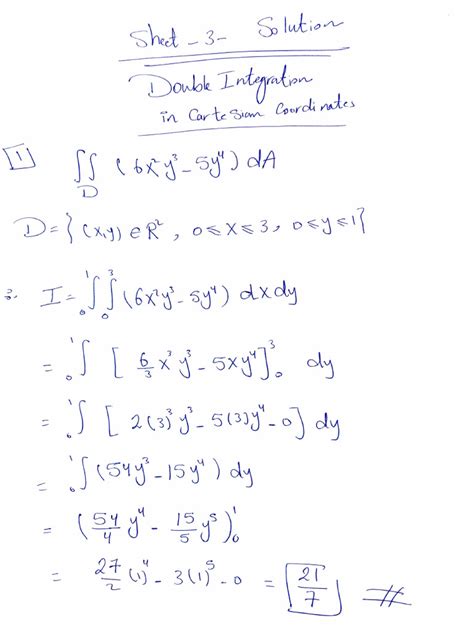 Sheet - 3 - Solution
Double Integration
in Cartesian Coordinates
1 ∬_D (6x²y³ - 5y⁴) dA
D = { (x,y) ∈ R² , 0 ≤ x ≤ 3 , 0 ≤ y ≤ 1 }
∴ I = ₀∫¹ ₀∫³ (6x²y³ - 5y⁴) dx dy
= ₀∫¹ [ 6/3 x³ y³ - 5xy⁴ ]₀³ dy
= ₀∫¹ [ 2(3)³ y³ - 5(3)y⁴ - 0 ] dy
= ₀∫¹ (54y³ - 15y⁴) dy
= ( 54/4 y⁴ - 15/5 y⁵ )₀¹
= 27/2 (1)⁴ - 3(1)⁵ - 0 = 21/7 #